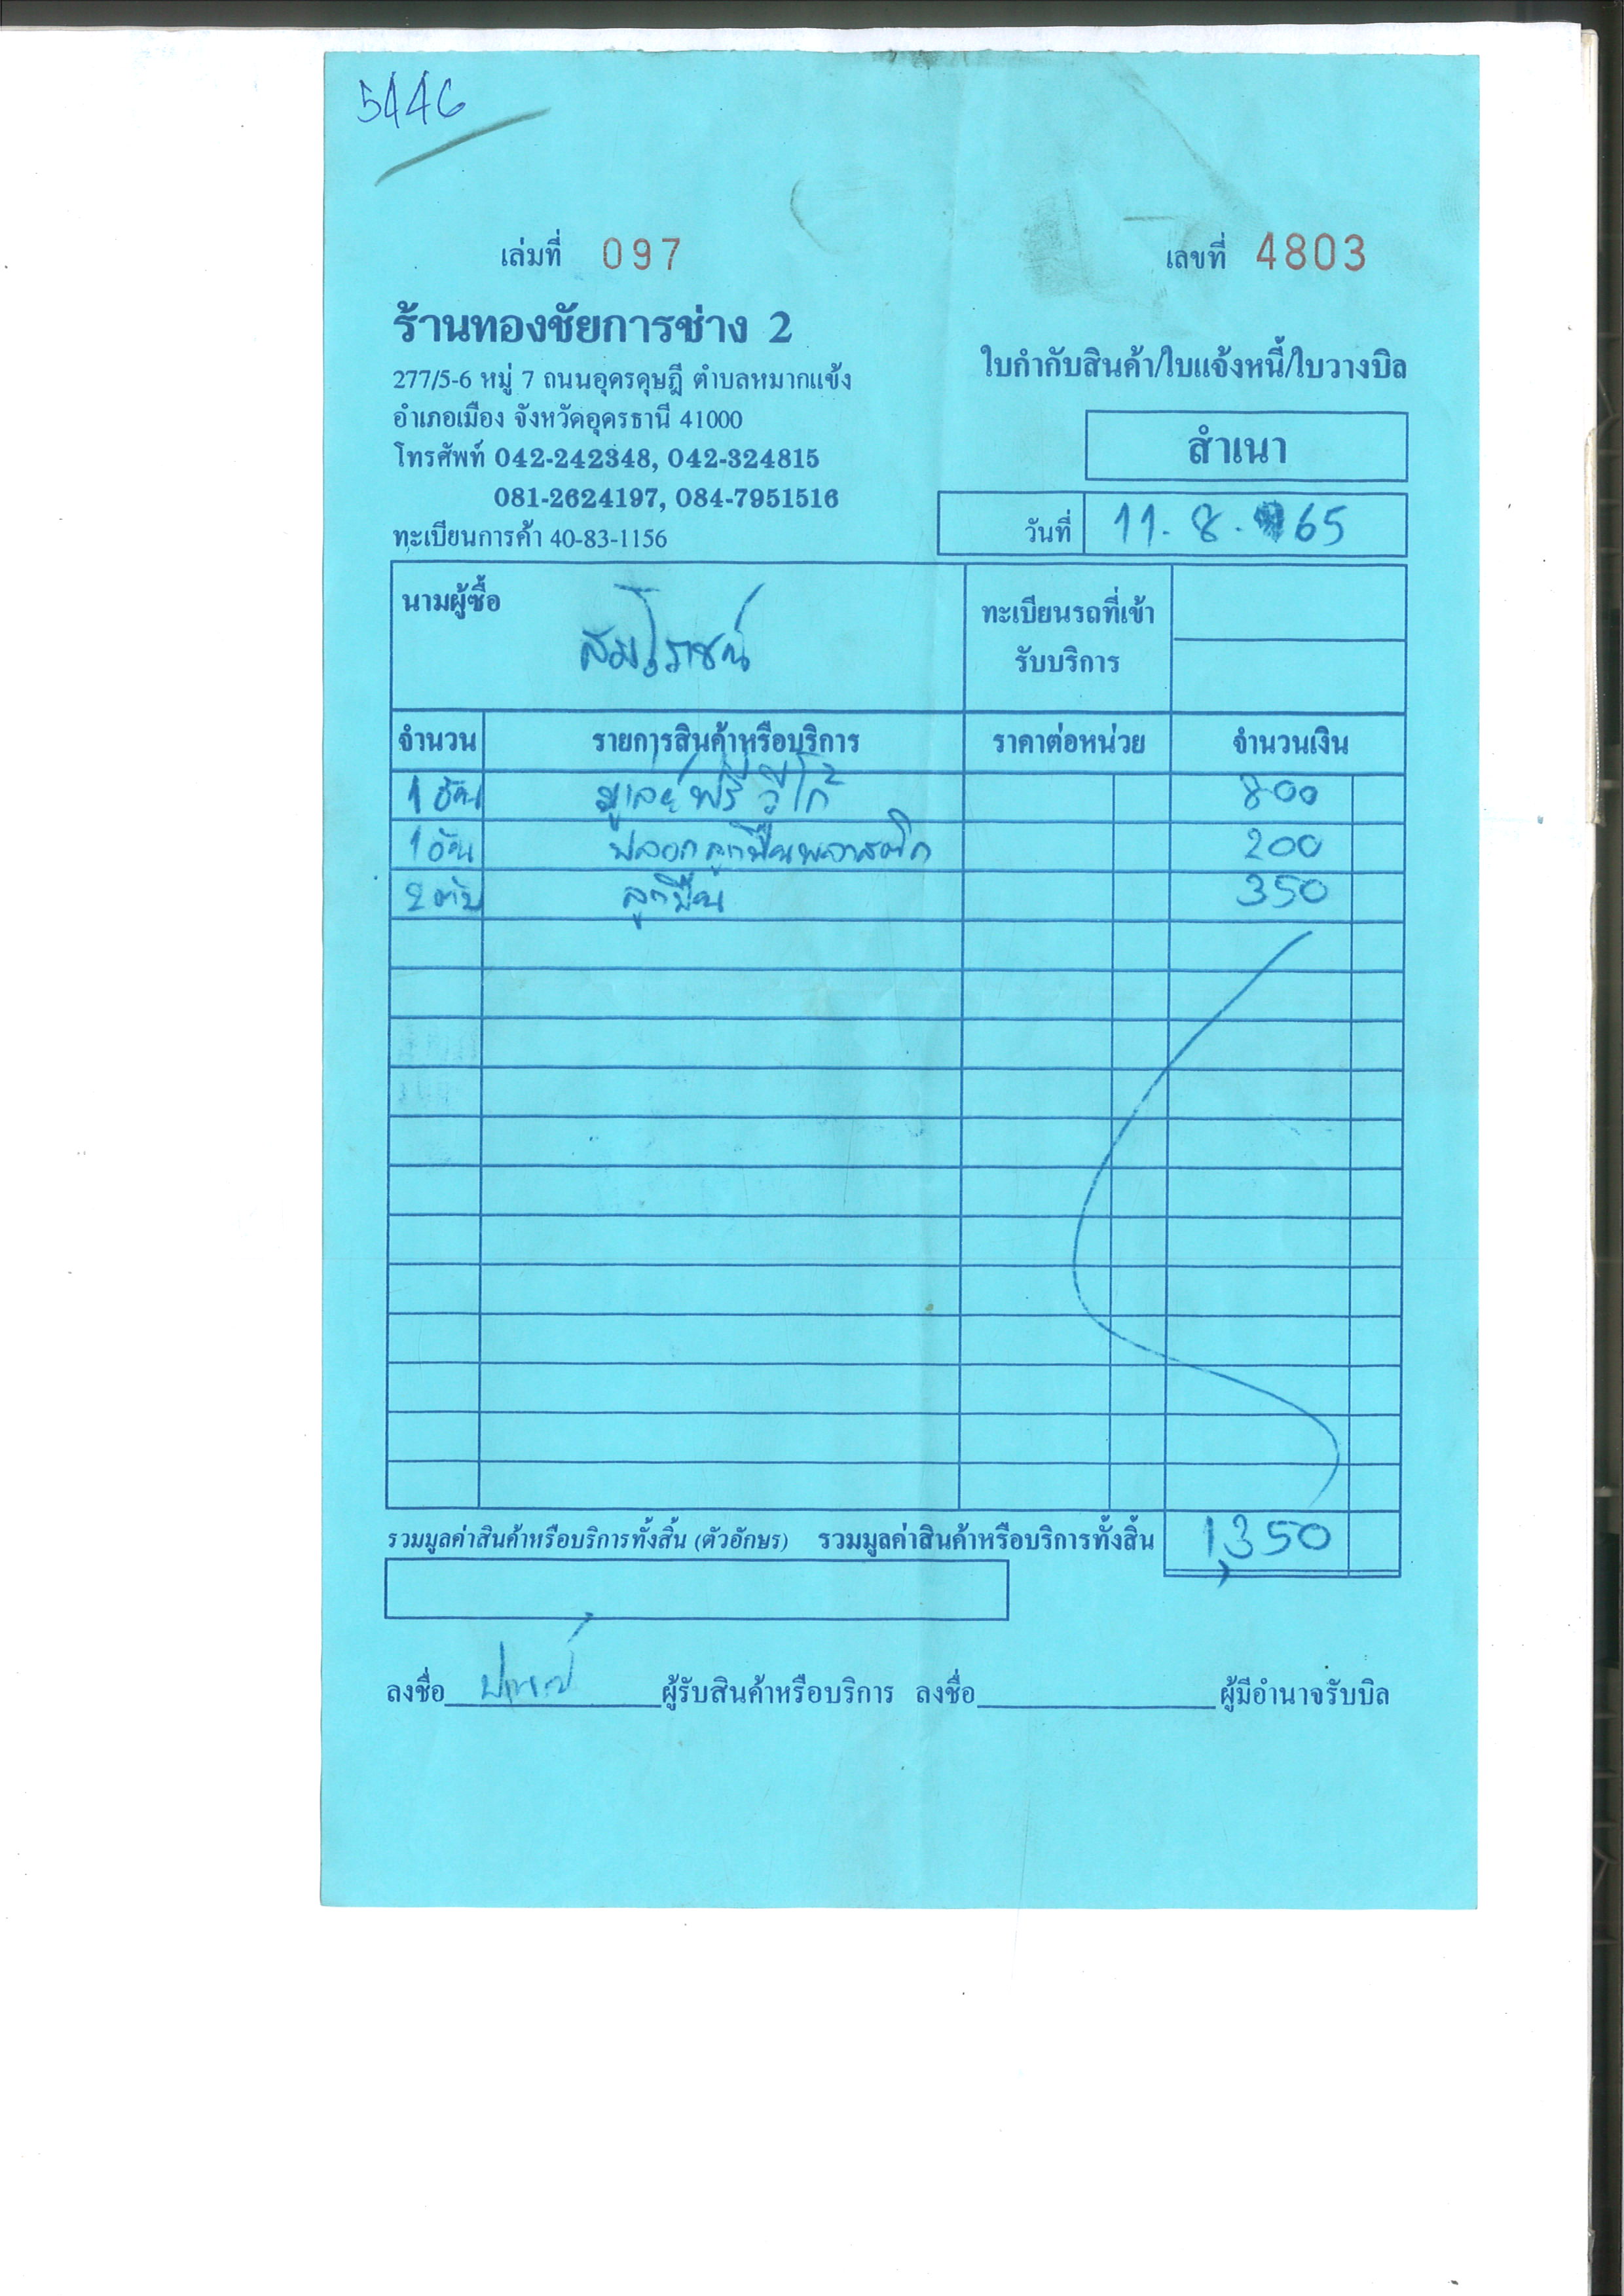 5446
เล่มที่ 097
เลขที่ 4803
ร้านทองชัยการช่าง 2
277/5-6 หมู่ 7 ถนนอุดรดุษฎี ตำบลหมากแข้ง
อำเภอเมือง จังหวัดอุดรธานี 41000
โทรศัพท์ 042-242348, 042-324815
081-2624197, 084-7951516
ทะเบียนการค้า 40-83-1156
ใบกำกับสินค้า/ใบแจ้งหนี้/ใบวางบิล
สำเนา
วันที่ 11. 8. 65
นามผู้ซื้อ
ทะเบียนรถที่เข้า
รับบริการ
จำนวน รายการสินค้าหรือบริการ ราคาต่อหน่วย จำนวนเงิน
1 อัน มูเล่ย์ฟรี วีโก้ 800
1 อัน ปลอกลูกปืนพลาสติก 200
2 ตับ ลูกปืน 350
รวมมูลค่าสินค้าหรือบริการทั้งสิ้น (ตัวอักษร) รวมมูลค่าสินค้าหรือบริการทั้งสิ้น 1,350
ลงชื่อ ผู้รับสินค้าหรือบริการ ลงชื่อ ผู้มีอำนาจรับบิล